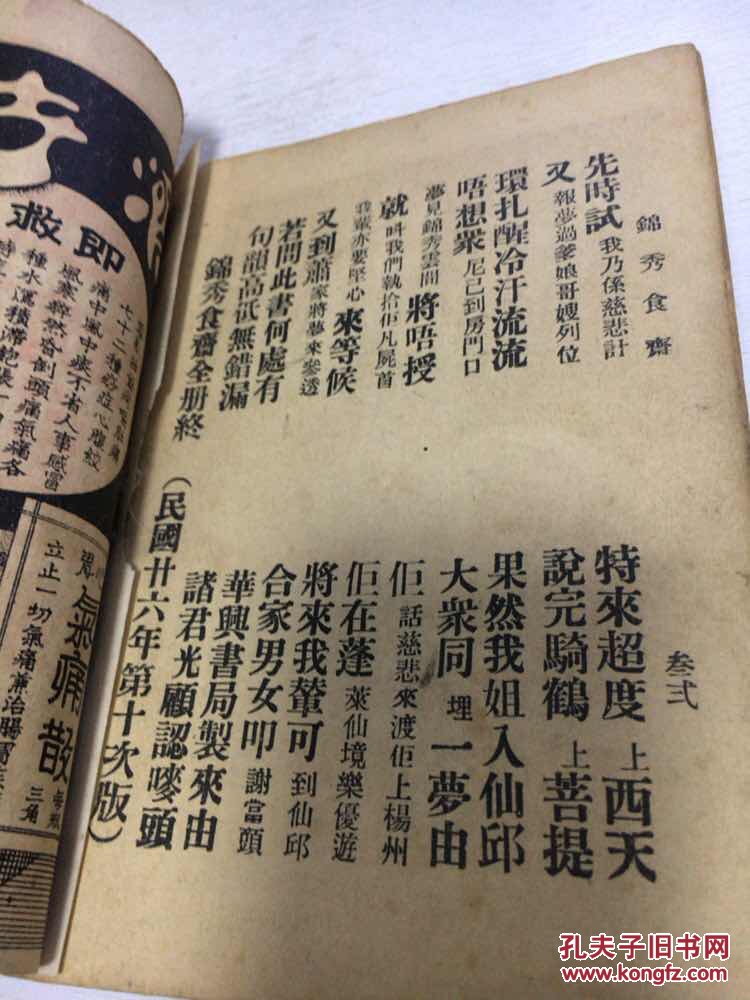 錦秀食齋
叁弍
先時試我乃係慈悲計 特來超度上西天
又報夢過爹娘哥嫂列位 說完騎鶴上菩提
環扎醒冷汗流流 果然我姐入仙邱
唔想衆尼已到房門口 大衆同埋一夢由
夢見錦秀雲間將唔授 佢話慈悲來渡佢上楊州
就呌我們執拾佢凡屍首 佢在蓬萊仙境樂優遊
我輩亦要堅心來等候 將來我輩可到仙邱
又到蕭家將夢來參透 合家男女叩謝當頭
若問此書何處有 華興書局製來由
句韻高低無錯漏 諸君光顧認嘜頭
錦秀食齋全册終 (民國廿六年第十次版)
即救
七十二種痧症心腹絞
痛中風中痰不省人事感冒
風寒猝然昏倒頭痛氣痛各
種水瀉積滯飽脹
氣痛散
每瓶
三角
立止一切氣痛兼治腸胃
孔夫子旧书网
www.kongfz.com